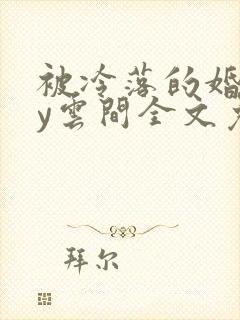 被冷落的婚
y雲間全文
拜尔